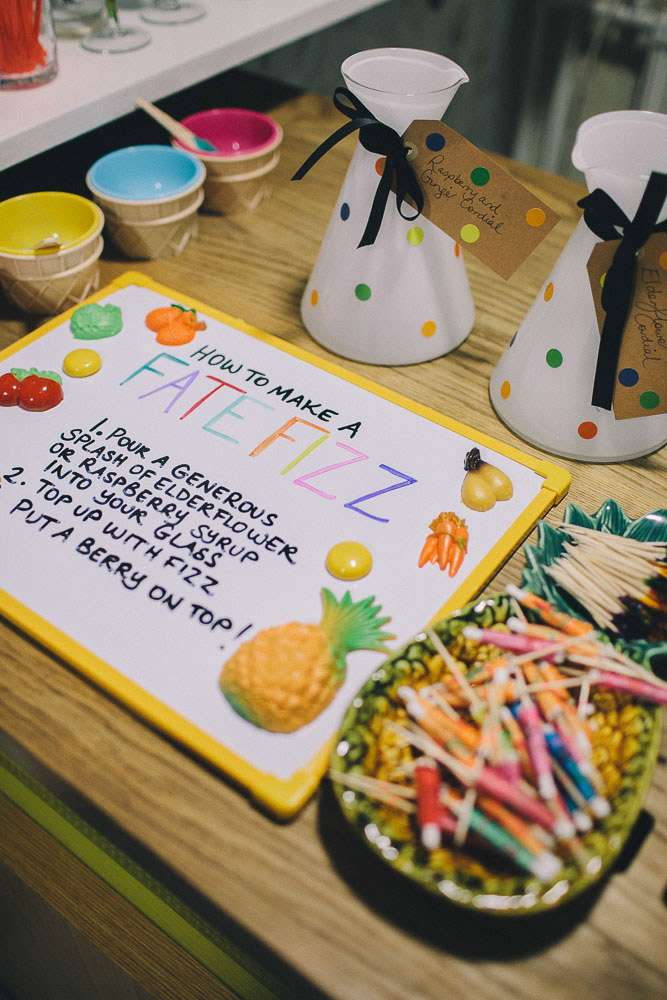 HOW TO MAKE A
FATE FIZZ
1. POUR A GENEROUS
SPLASH OF ELDERFLOWER
OR RASPBERRY SYRUP
INTO YOUR GLASS
2. TOP UP WITH FIZZ
PUT A BERRY ON TOP!
Raspberry and
Ginger Cordial
Elderflower
Cordial